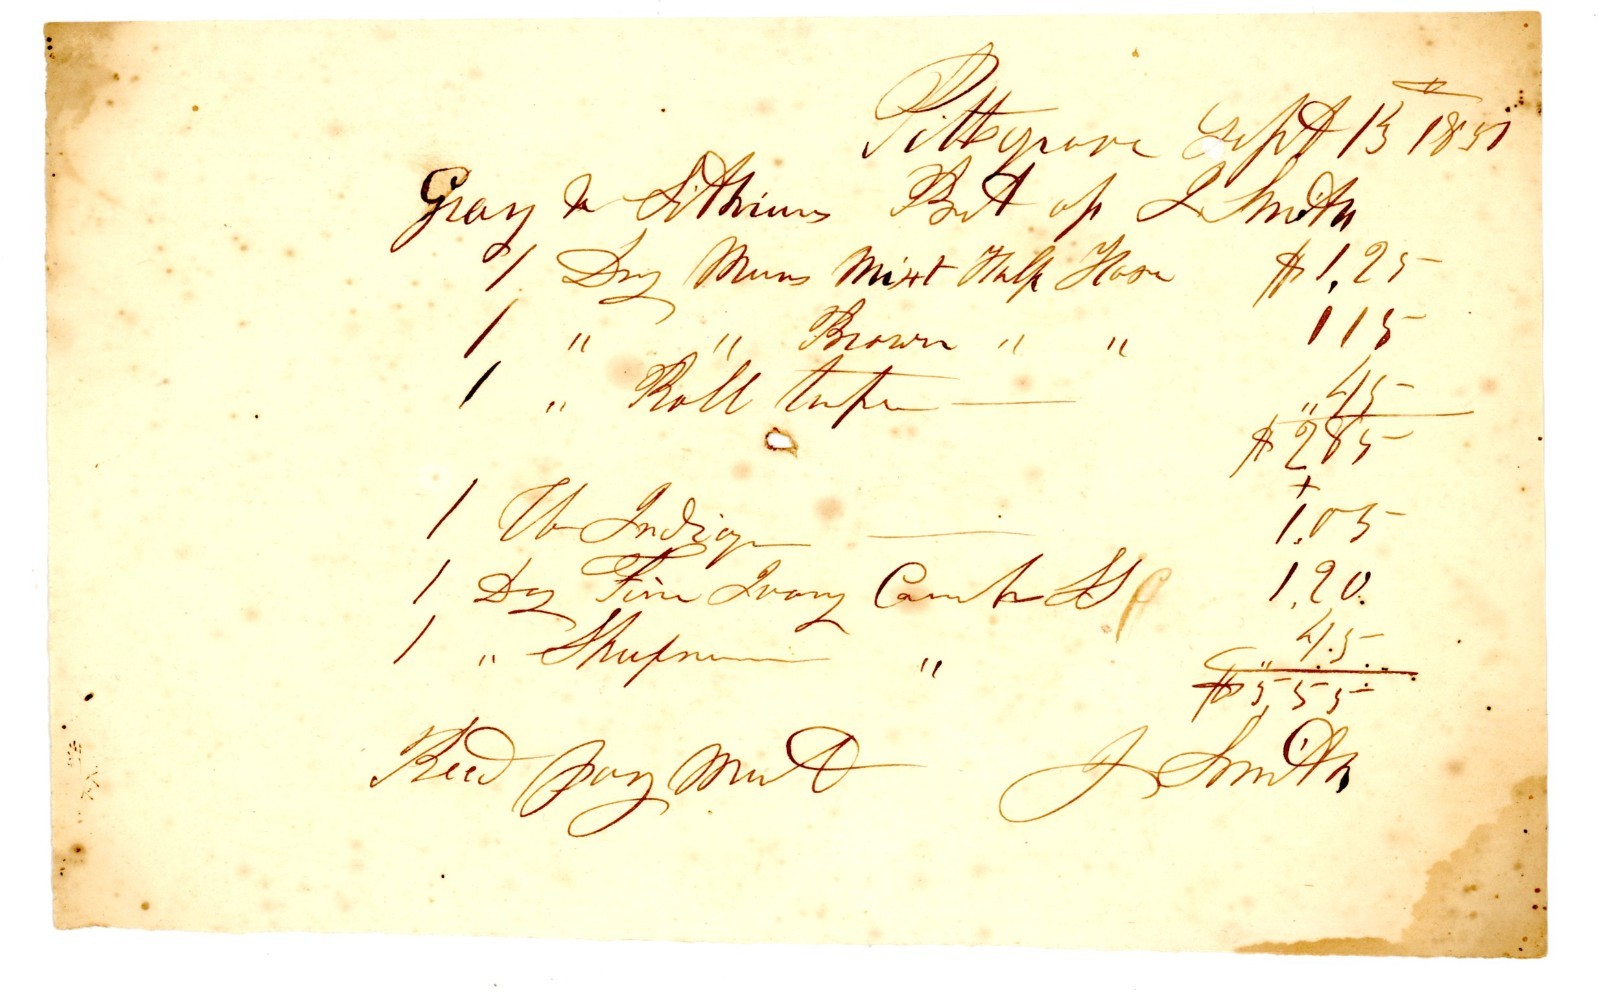 Pittsgrove Sept 13th 1851
Gray & Sithins Bot of J Smith
1 Doz Mens Mixt Half Hose $1.25
1 " " Brown " " 115
1 " Roll " 45
$285
1 lb Indigo 1.05
1 Doz Fine Ivory Combs 1.20.
1 " " " 45
$555
Recd Payment J Smith